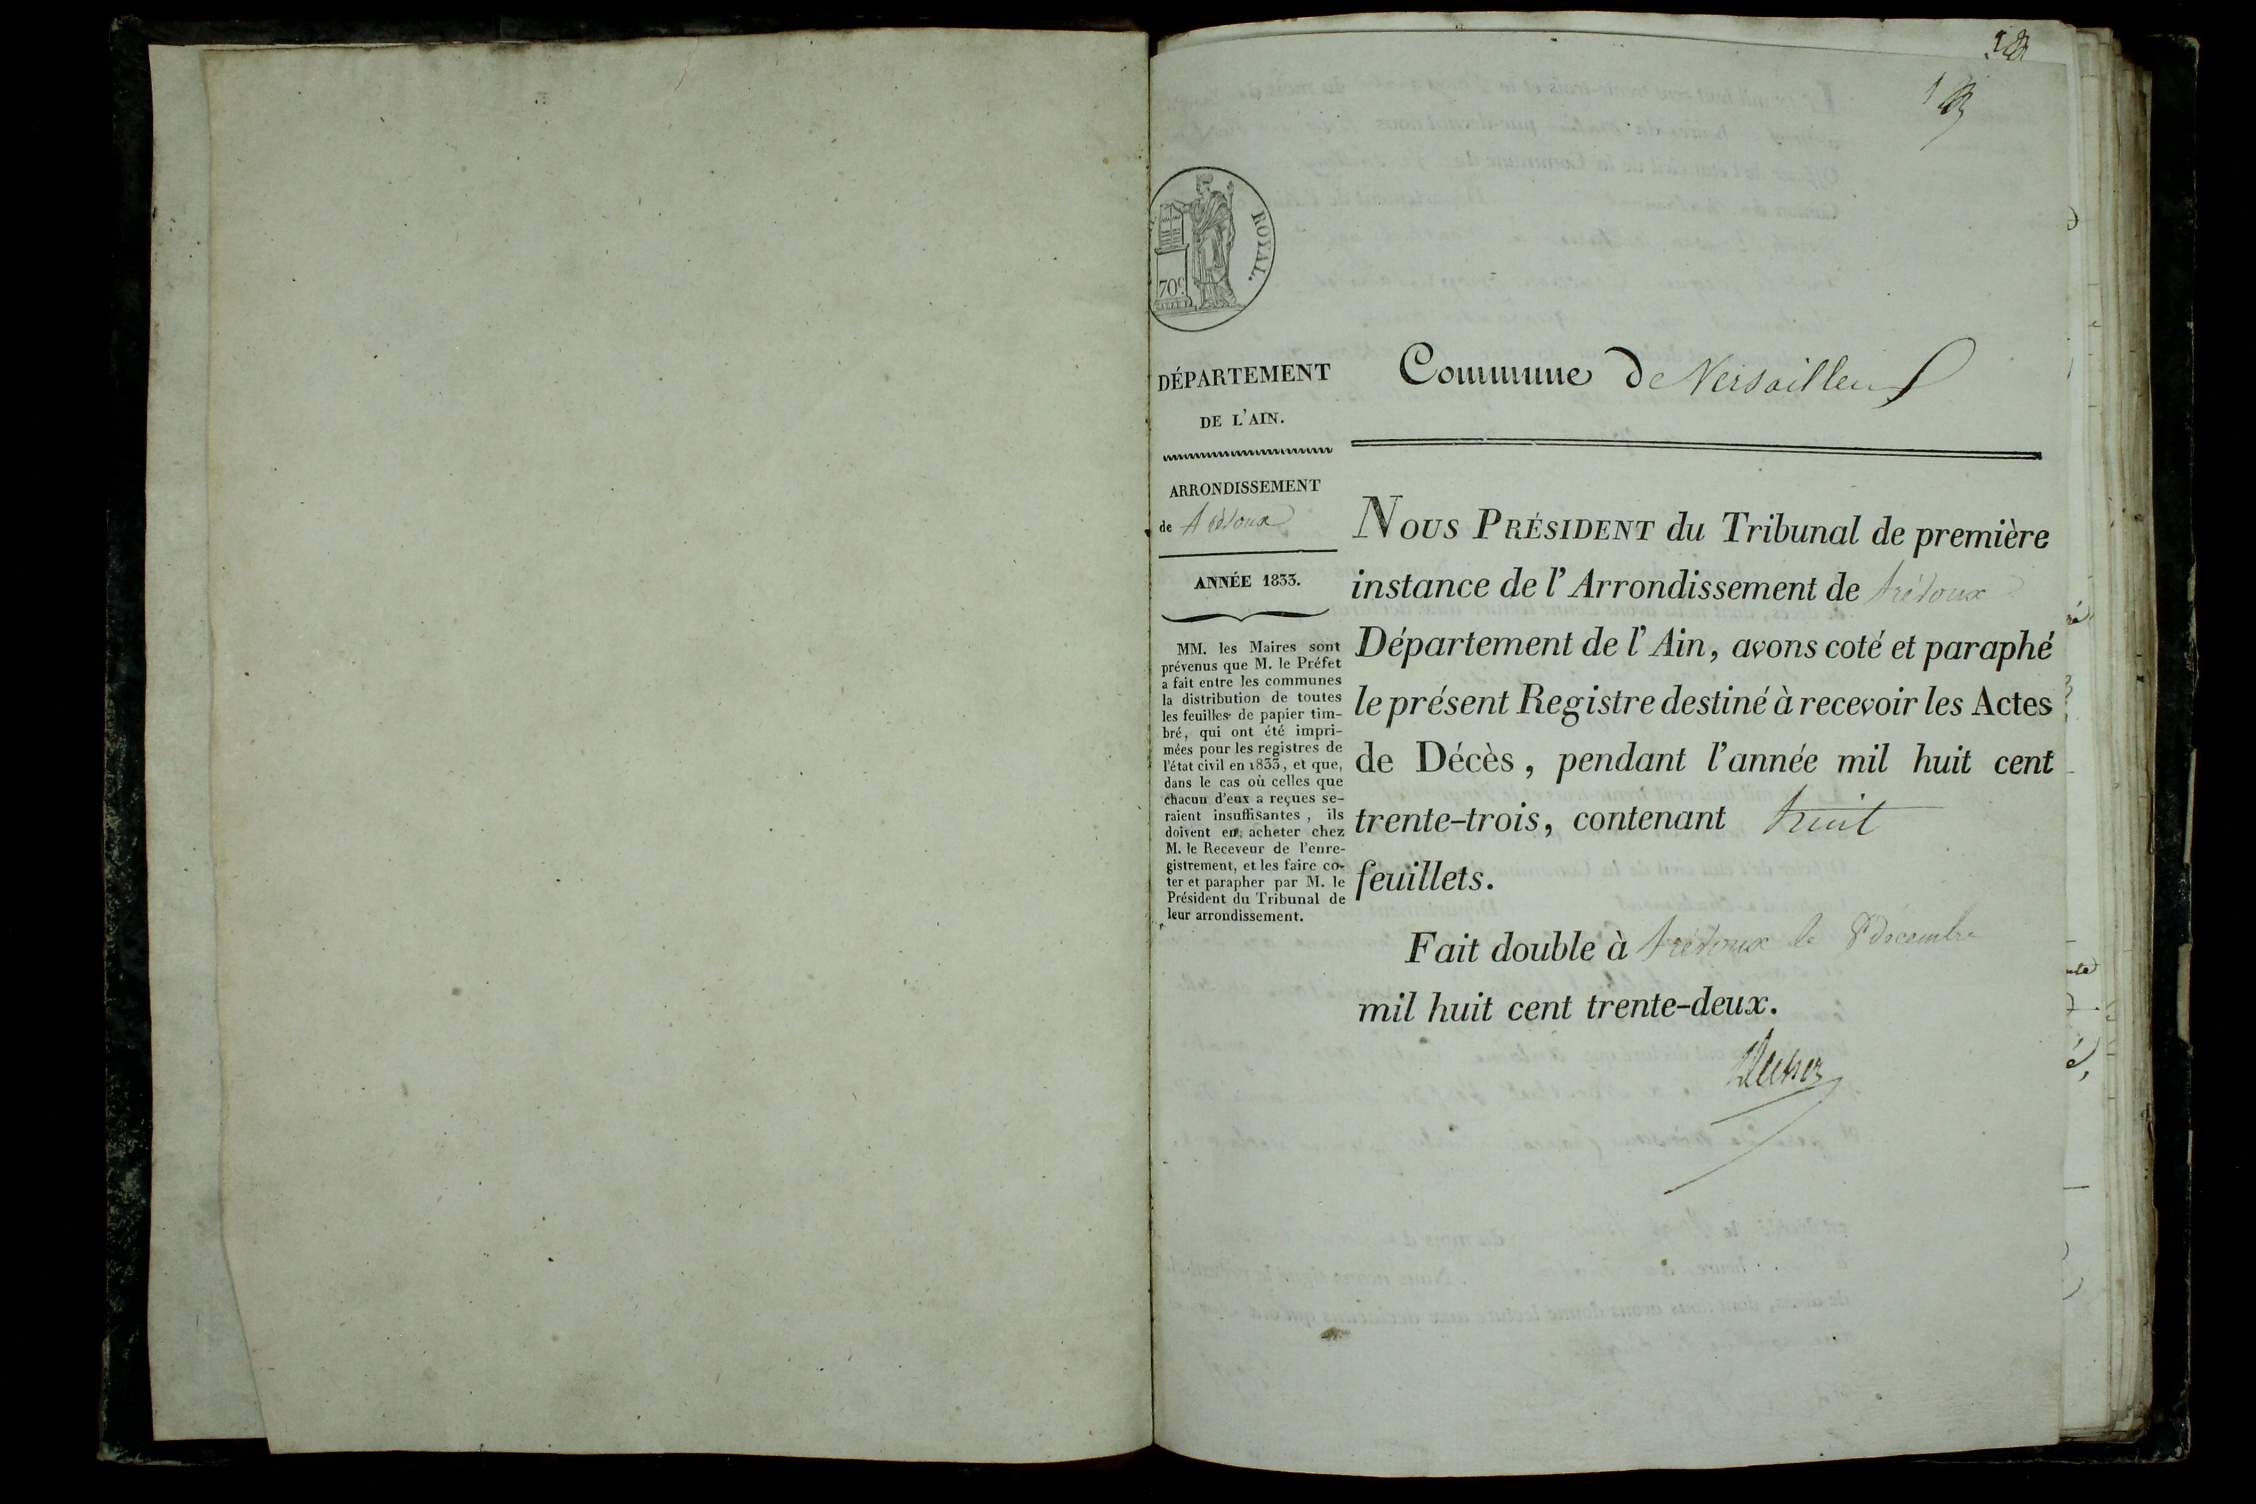 1
1
ROYAL.
70c
DÉPARTEMENT
DE L'AIN.
ARRONDISSEMENT
de trévoux
ANNÉE 1833.
MM. les Maires sont
prévenus que M. le Préfet
a fait entre les communes
la distribution de toutes
les feuilles de papier tim-
bré, qui ont été impri-
mées pour les registres de
l'état civil en 1833, et que,
dans le cas où celles que
chacun d'eux a reçues se-
raient insuffisantes, ils
doivent en acheter chez
M. le Receveur de l'enre-
gistrement, et les faire co-
ter et parapher par M. le
Président du Tribunal de
leur arrondissement.
Commune de Versailleux
NOUS PRÉSIDENT du Tribunal de première
instance de l'Arrondissement de trévoux
Département de l'Ain, avons coté et paraphé
le présent Registre destiné à recevoir les Actes
de Décès, pendant l'année mil huit cent
trente-trois, contenant huit
feuillets.
Fait double à trévoux le 8 décembre
mil huit cent trente-deux.